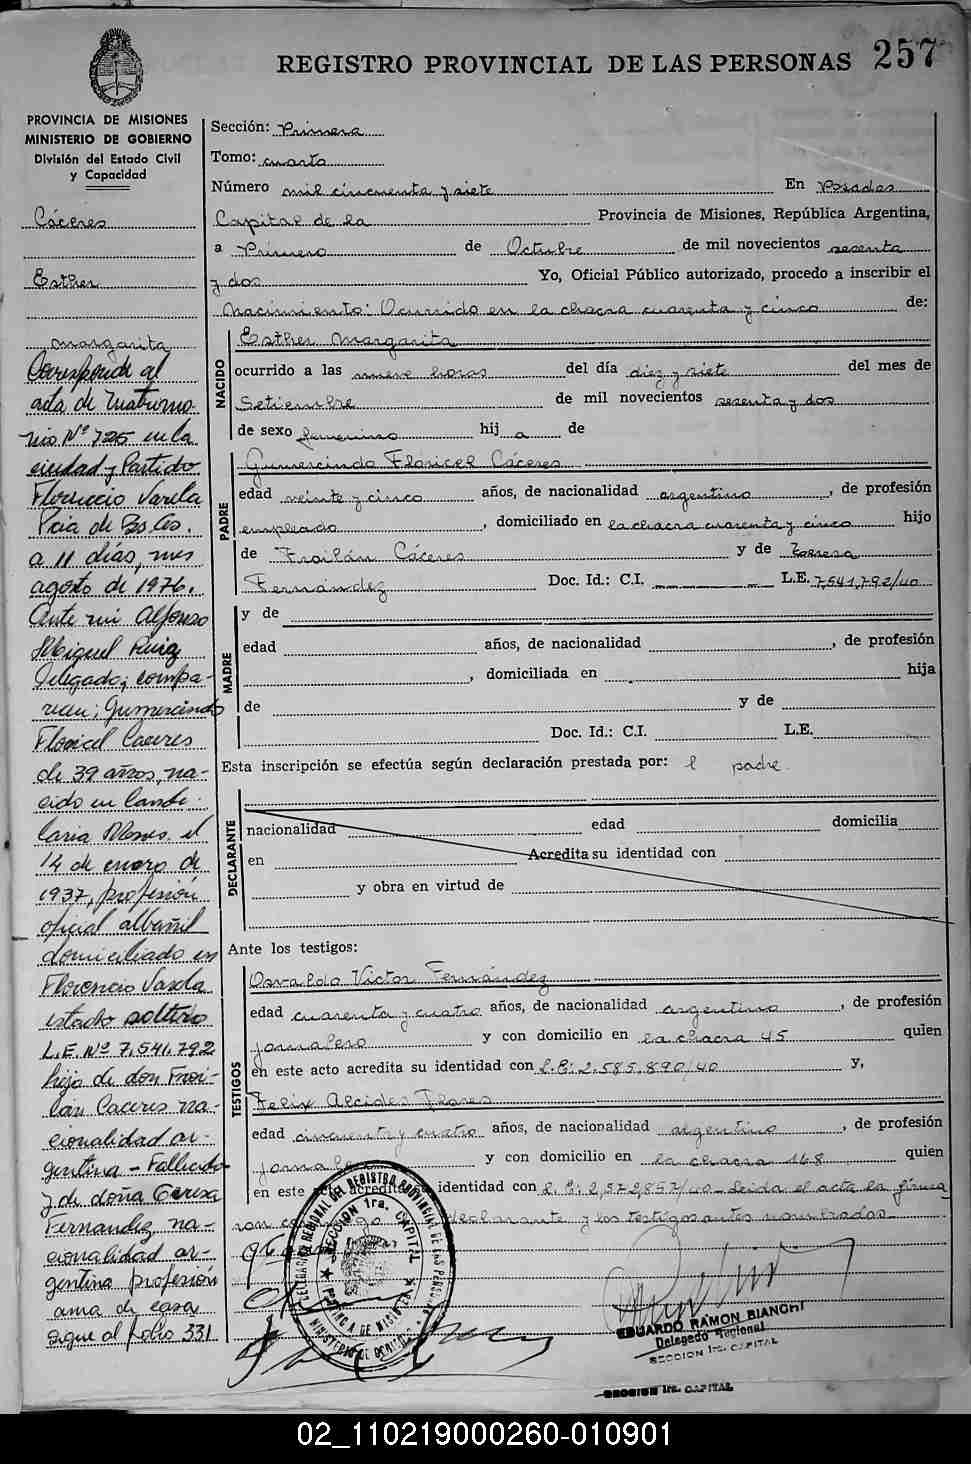 REGISTRO PROVINCIAL DE LAS PERSONAS 257
PROVINCIA DE MISIONES
MINISTERIO DE GOBIERNO
División del Estado Civil
y Capacidad
Cáceres
Esther
margarita
Corresponde al
acta de Matrimo-
nio Nº 725 en la
ciudad y Partido
Florencio Varela
Pcia de Bs As.
a 11 días, mes
agosto de 1976.
Ante mi Alfonso
Miguel Ruiz
Delegado; compa-
recen; Gumercindo
Floricel Caceres
de 39 años, na-
cido en Cande-
laria Mnes. el
14 de enero de
1937, profesión
oficial albañil
domiciliado en
Florencio Varela
estado soltero
L.E. Nº 7.541.792
hijo de don Froi-
lán Caceres na-
cionalidad ar-
gentina - Fallecido
y de doña Teresa
Fernandez, na-
cionalidad ar-
gentina profesión
ama de casa
sigue al folio 331
Sección: Primera
Tomo: cuarto
Número mil cincuenta y siete En Posadas
Capital de la Provincia de Misiones, República Argentina,
a Primero de Octubre de mil novecientos sesenta
y dos Yo, Oficial Público autorizado, procedo a inscribir el
nacimiento: Ocurrido en la chacra cuarenta y cinco de:
NACIDO
Esther Margarita
ocurrido a las nueve horas del día diez y siete del mes de
Setiembre de mil novecientos sesenta y dos
de sexo femenino hij a de
PADRE
Gumercindo Floricel Cáceres
edad veinte y cinco años, de nacionalidad argentino, de profesión
empleado, domiciliado en la chacra cuarenta y cinco hijo
de Froilán Cáceres y de Teresa
Fernández Doc. Id.: C.I. L.E. 7,541,792/40
MADRE
y de
edad años, de nacionalidad , de profesión
, domiciliada en hija
de y de
Doc. Id.: C.I. L.E.
Esta inscripción se efectúa según declaración prestada por: el padre.
DECLARANTE
nacionalidad edad domicilia
en Acredita su identidad con
y obra en virtud de
Ante los testigos:
TESTIGOS
Osvaldo Victor Fernández
edad cuarenta y cuatro años, de nacionalidad argentino, de profesión
jornalero y con domicilio en la chacra 45 quien
en este acto acredita su identidad con L.E: 2.585.890/40 y,
Felix Alcides Flores
edad cincuenta y cuatro años, de nacionalidad argentino, de profesión
jornalero y con domicilio en la chacra 168 quien
en este acredita identidad con L.E: 2,572,857/40 - Leida el acta la firma
ron declarante y los testigos antes nombrados
DELEGACION REGIONAL DEL REGISTRO PROVINCIAL DE LAS PERSONAS
SECCION 1ra. CAPITAL
MINISTERIO DE GOBIERNO
EDUARDO RAMON BIANCHI
Delegado Regional
SECCION 1ra. CAPITAL
SECCION 1ra. CAPITAL
02_110219000260-010901